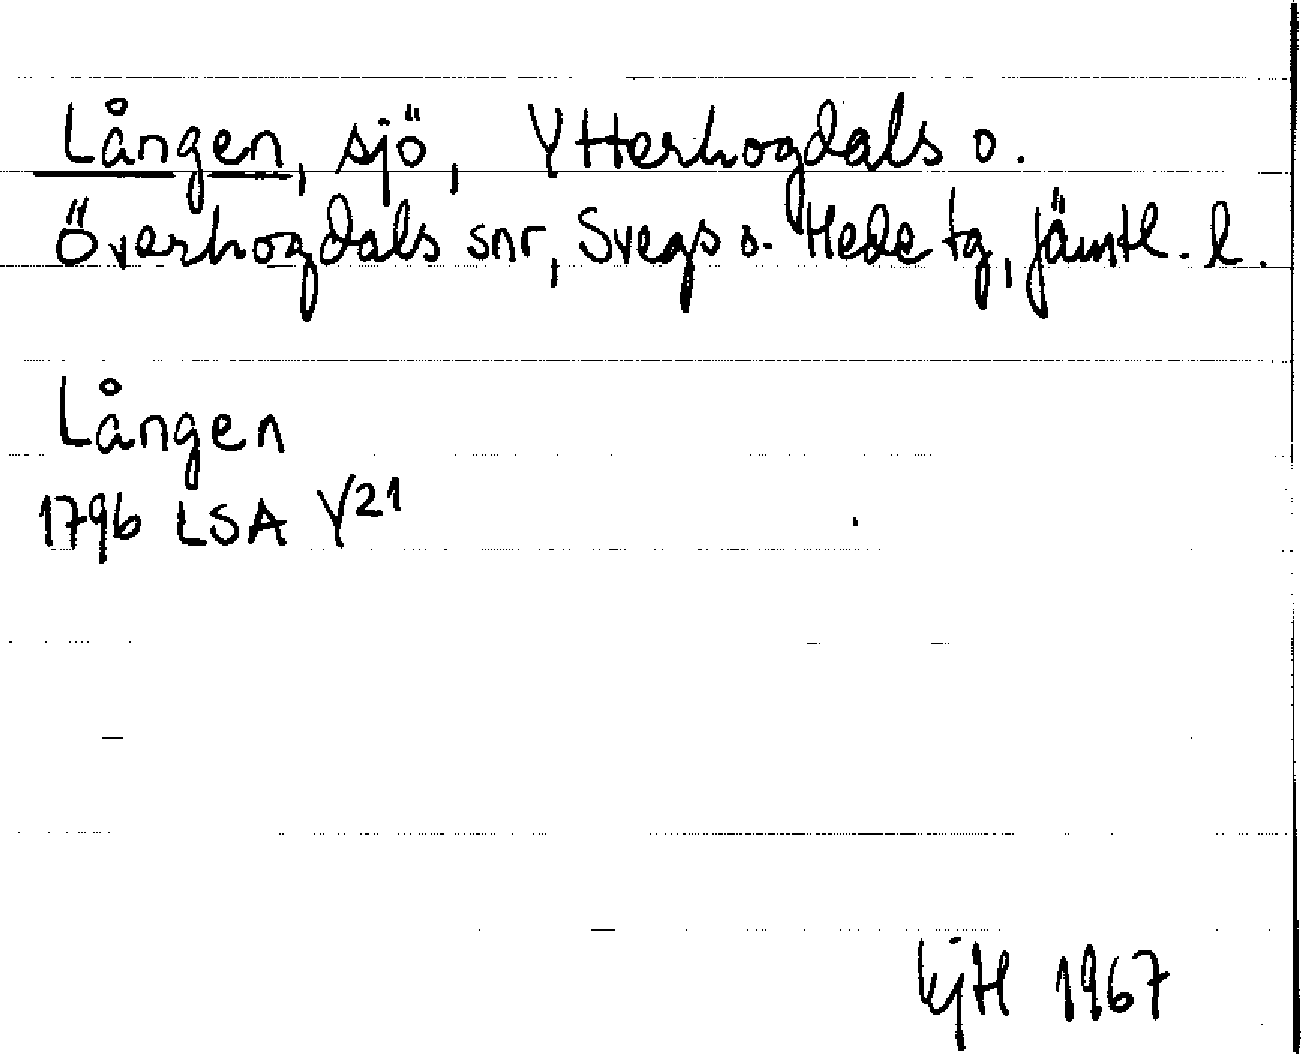 Lången, sjö, Ytterhogdals o.
Överhogdals snr, Svegs o. Hede tg, Jämtl. l.
Lången
1796 LSA Y21
KjH 1967